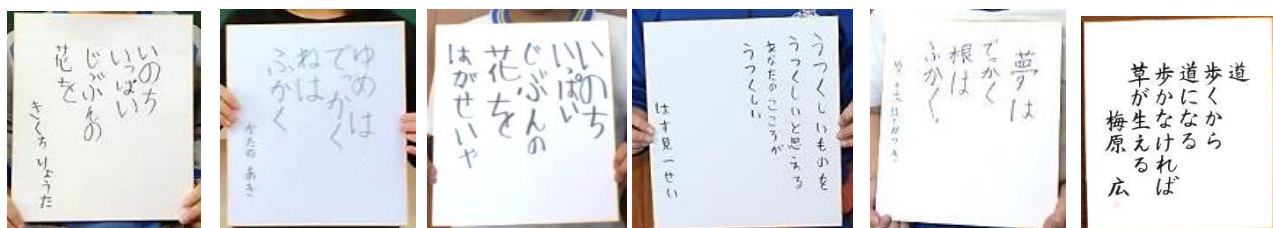 いのち
いっぱい
じぶんの
花を
きくち りょうた
ゆめは
でっかく
ねは
ふかく
かたの あき
いのち
いっぱい
じぶんの
花を
はがせいや
うつくしいものを
うつくしいと思える
あなたのこころが
うつくしい
はす見一せい
夢は
でっかく
根は
ふかく。
道
歩くから
道になる
歩かなければ
草が生える
梅原 広